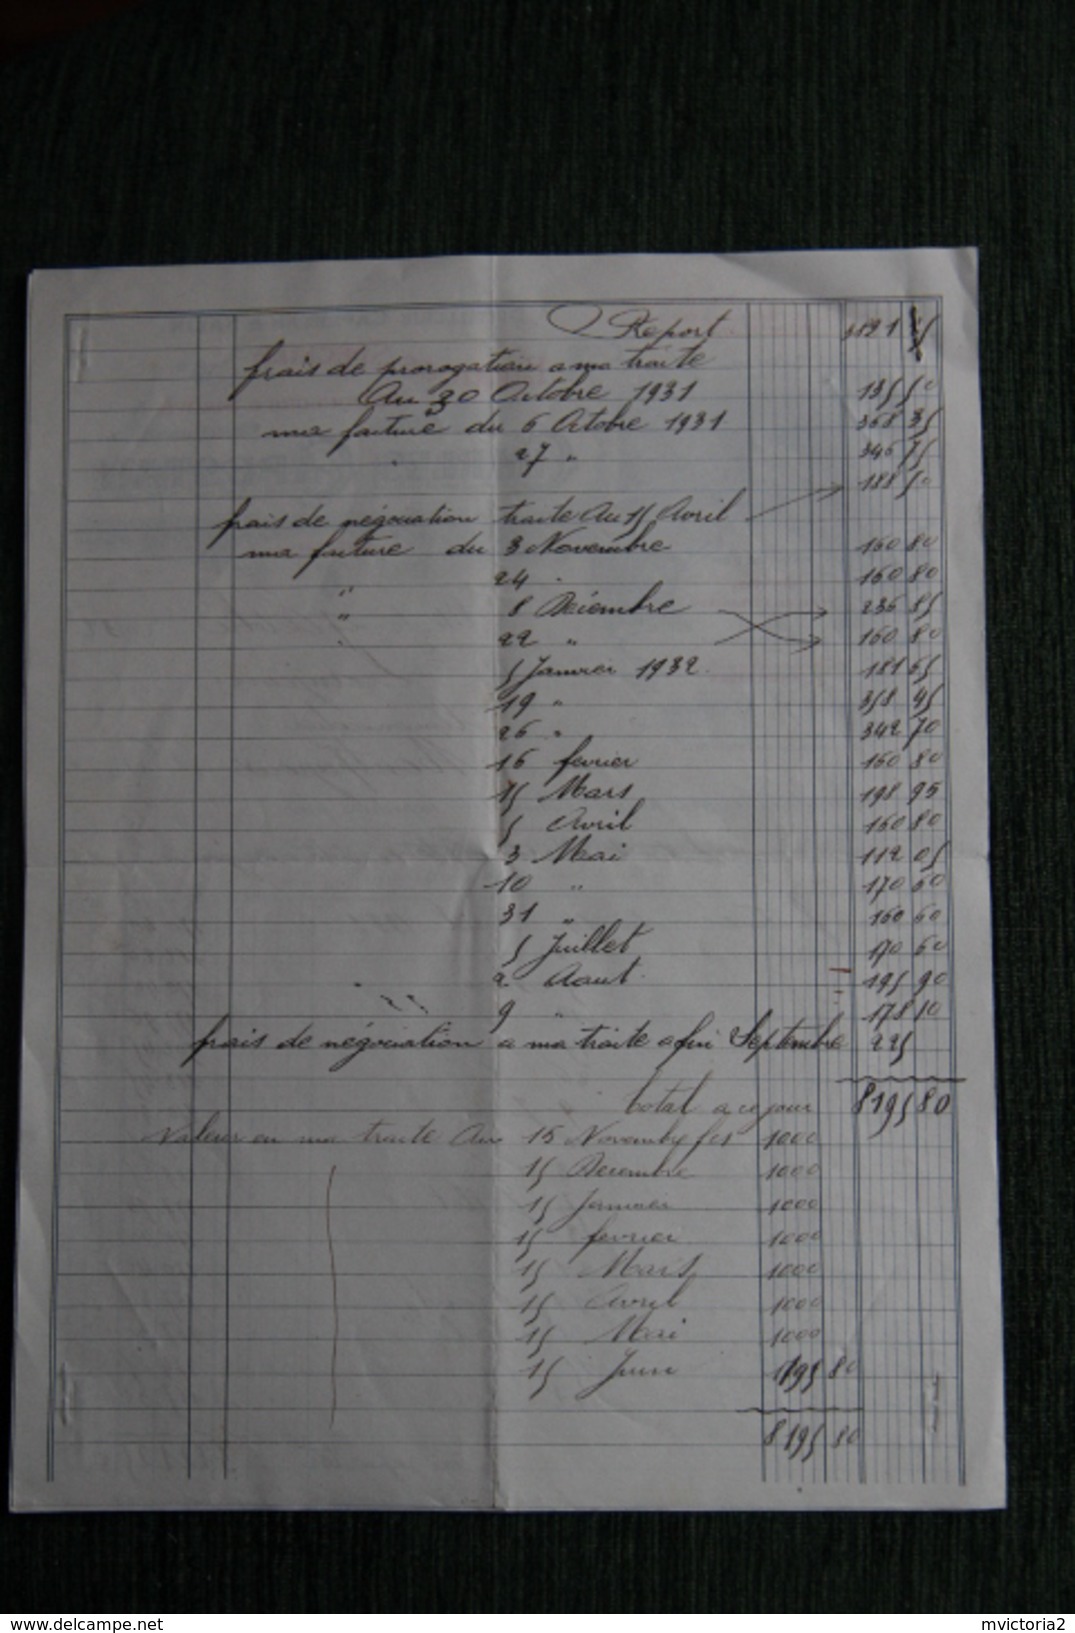 Report 3121 15
frais de prorogation a ma traite
Au 30 Octobre 1931 135 50
ma facture du 6 Octobre 1931 368 35
27 " 346 75
188 50
frais de négociation traite Au 15 Avril
ma facture du 3 Novembre 160 80
24 " 160 80
" 8 Décembre 236 85
" 22 " 160 80
5 Janvier 1932 181 65
19 " 358 45
26 " 342 70
16 fevrier 160 80
15 Mars 198 95
5 Avril 160 80
3 Mai 112 05
10 " 170 60
31 " 160 60
5 Juillet 170 60
2 Aout 195 90
9 " 178 10
frais de négociation a ma traite a fin Septembre 225
total a ce jour 8195 80
Valeur en ma traite Au 15 Novembre frs 1000
15 Decembre 1000
15 Janvier 1000
15 fevrier 1000
15 Mars 1000
15 Avril 1000
15 Mai 1000
15 Juin 1195 80
8195 80
delcampe.net
mvictoria2